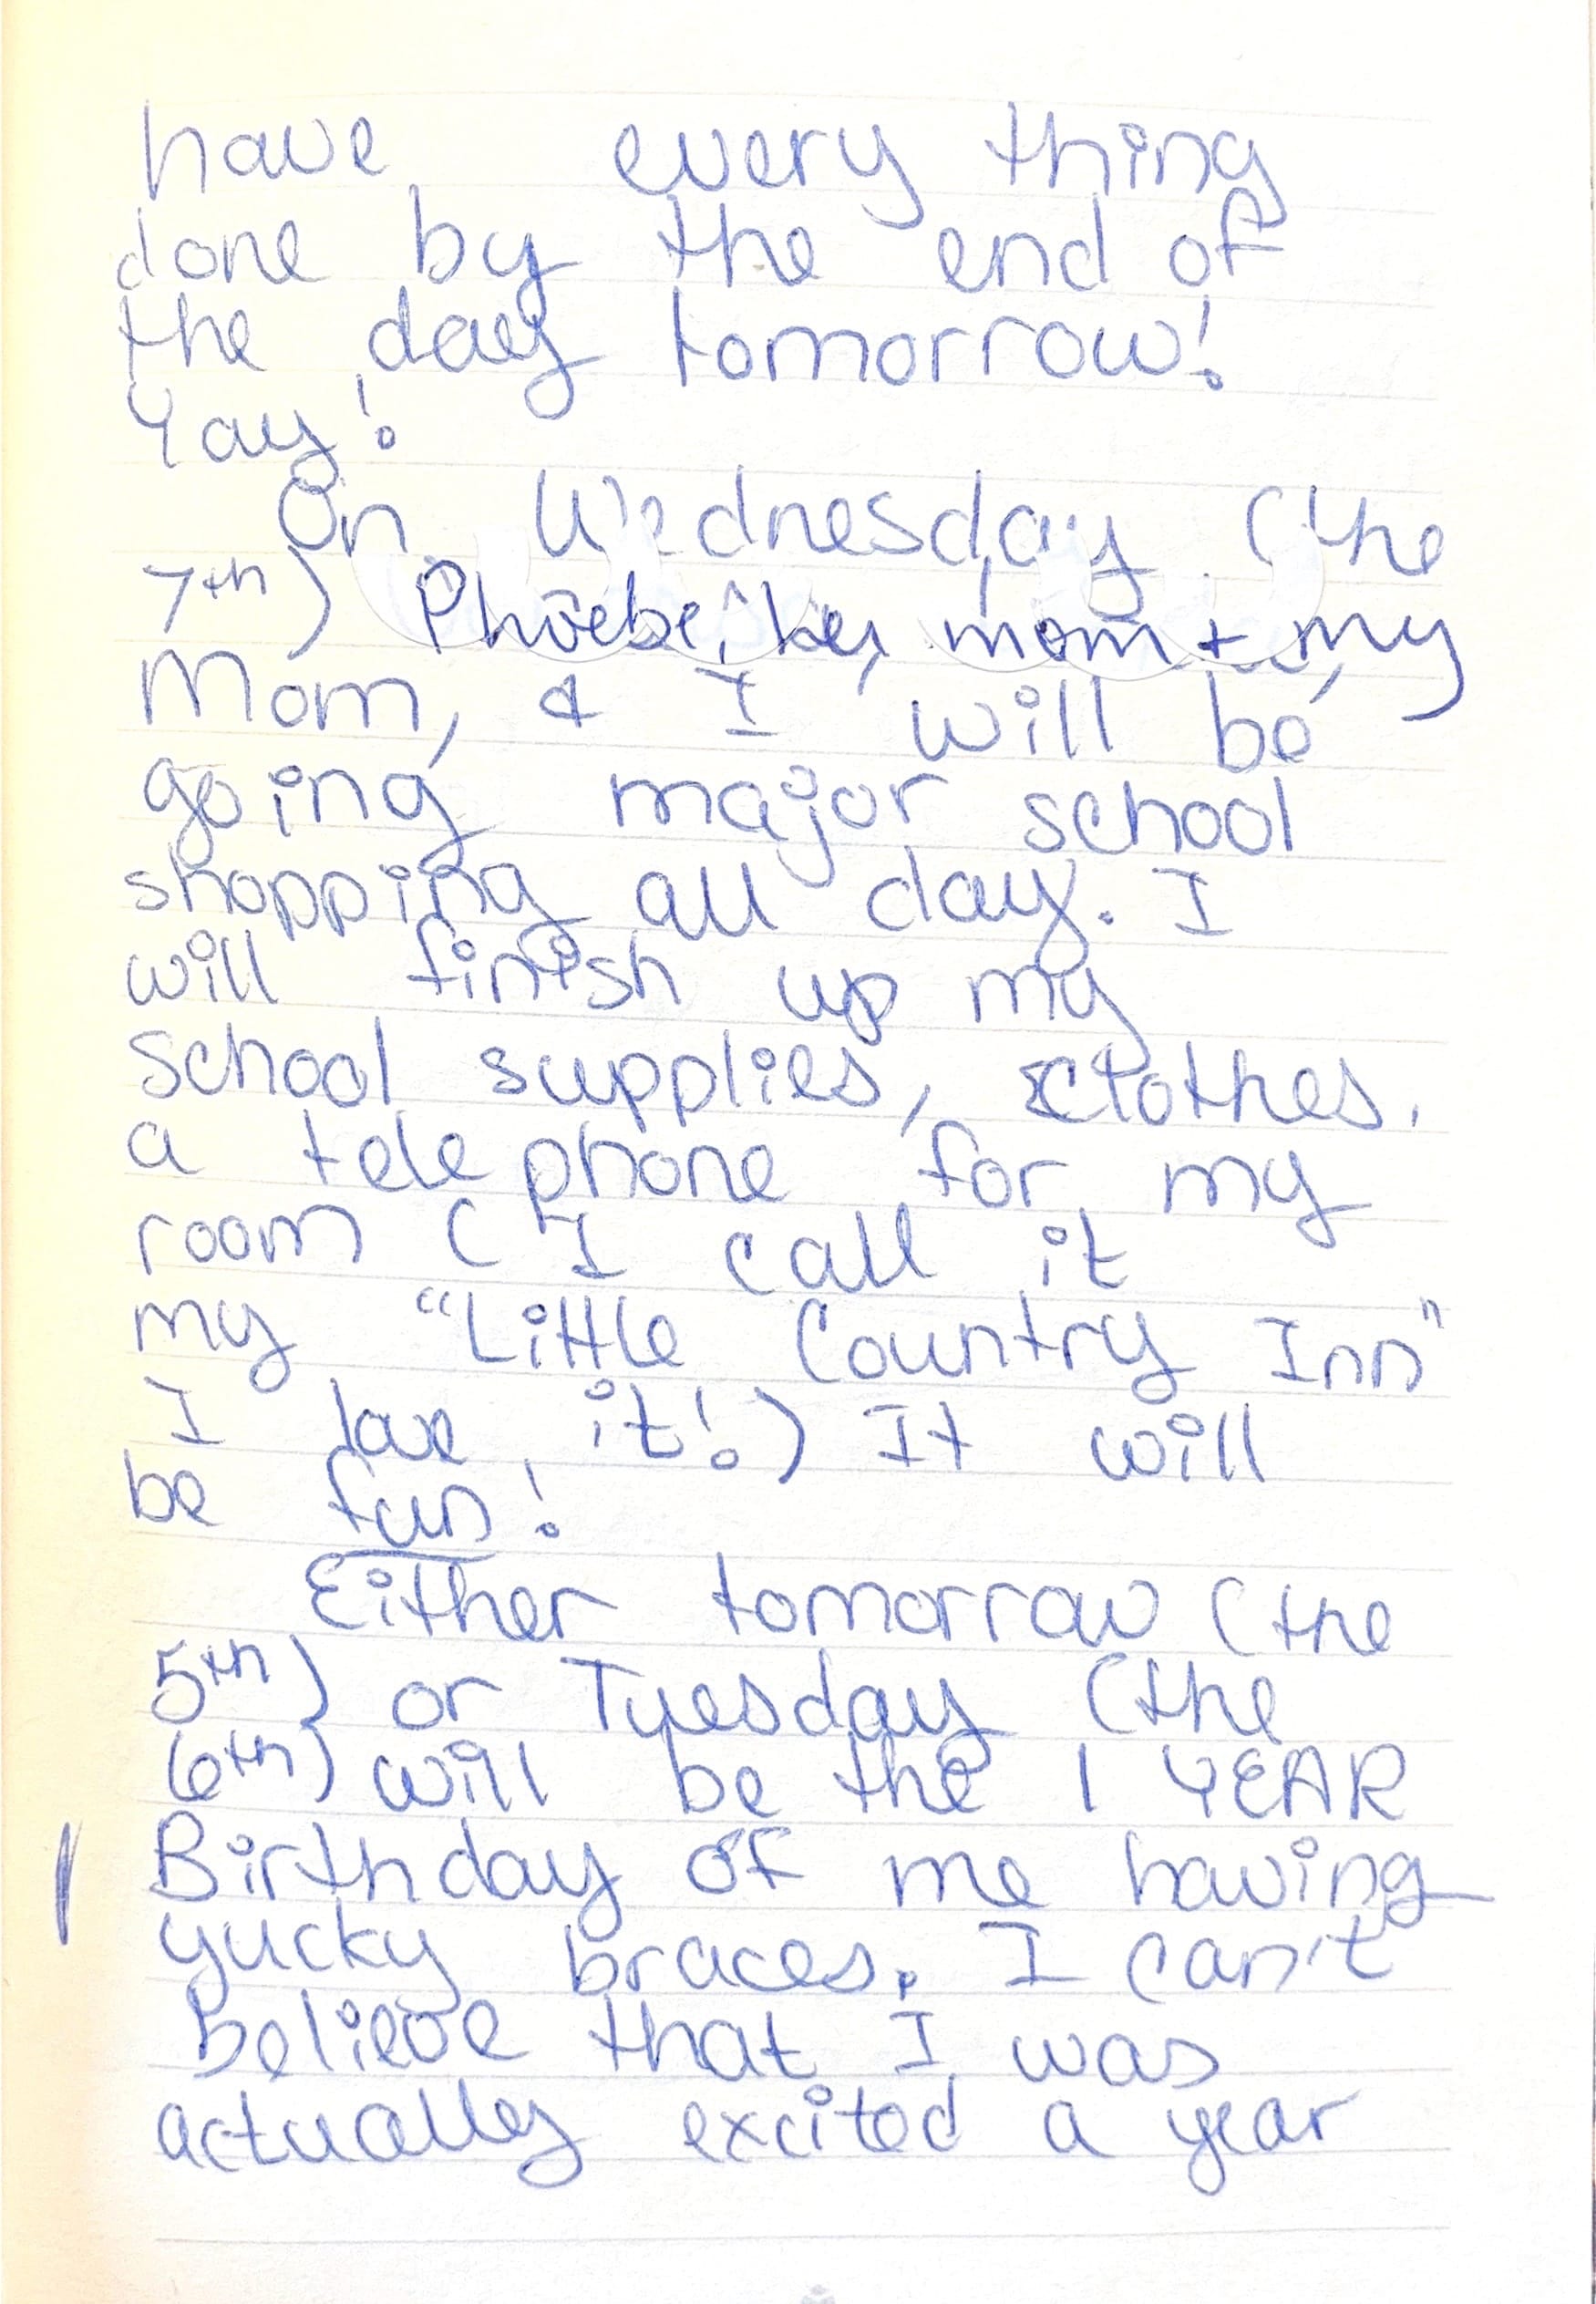 have every thing
done by the end of
the day tomorrow!
Yay!
On Wednesday (the
7th) Phoebe, her mom + my
Mom, & I will be
going major school
shopping all day. I
will finish up my
school supplies, clothes,
a telephone for my
room (I call it
my "Little Country Inn"
I love it!) It will
be fun!
Either tomorrow (the
5th) or Tuesday (the
6th) will be the 1 YEAR
Birthday of me having
yucky braces. I can't
believe that I was
actually excited a year